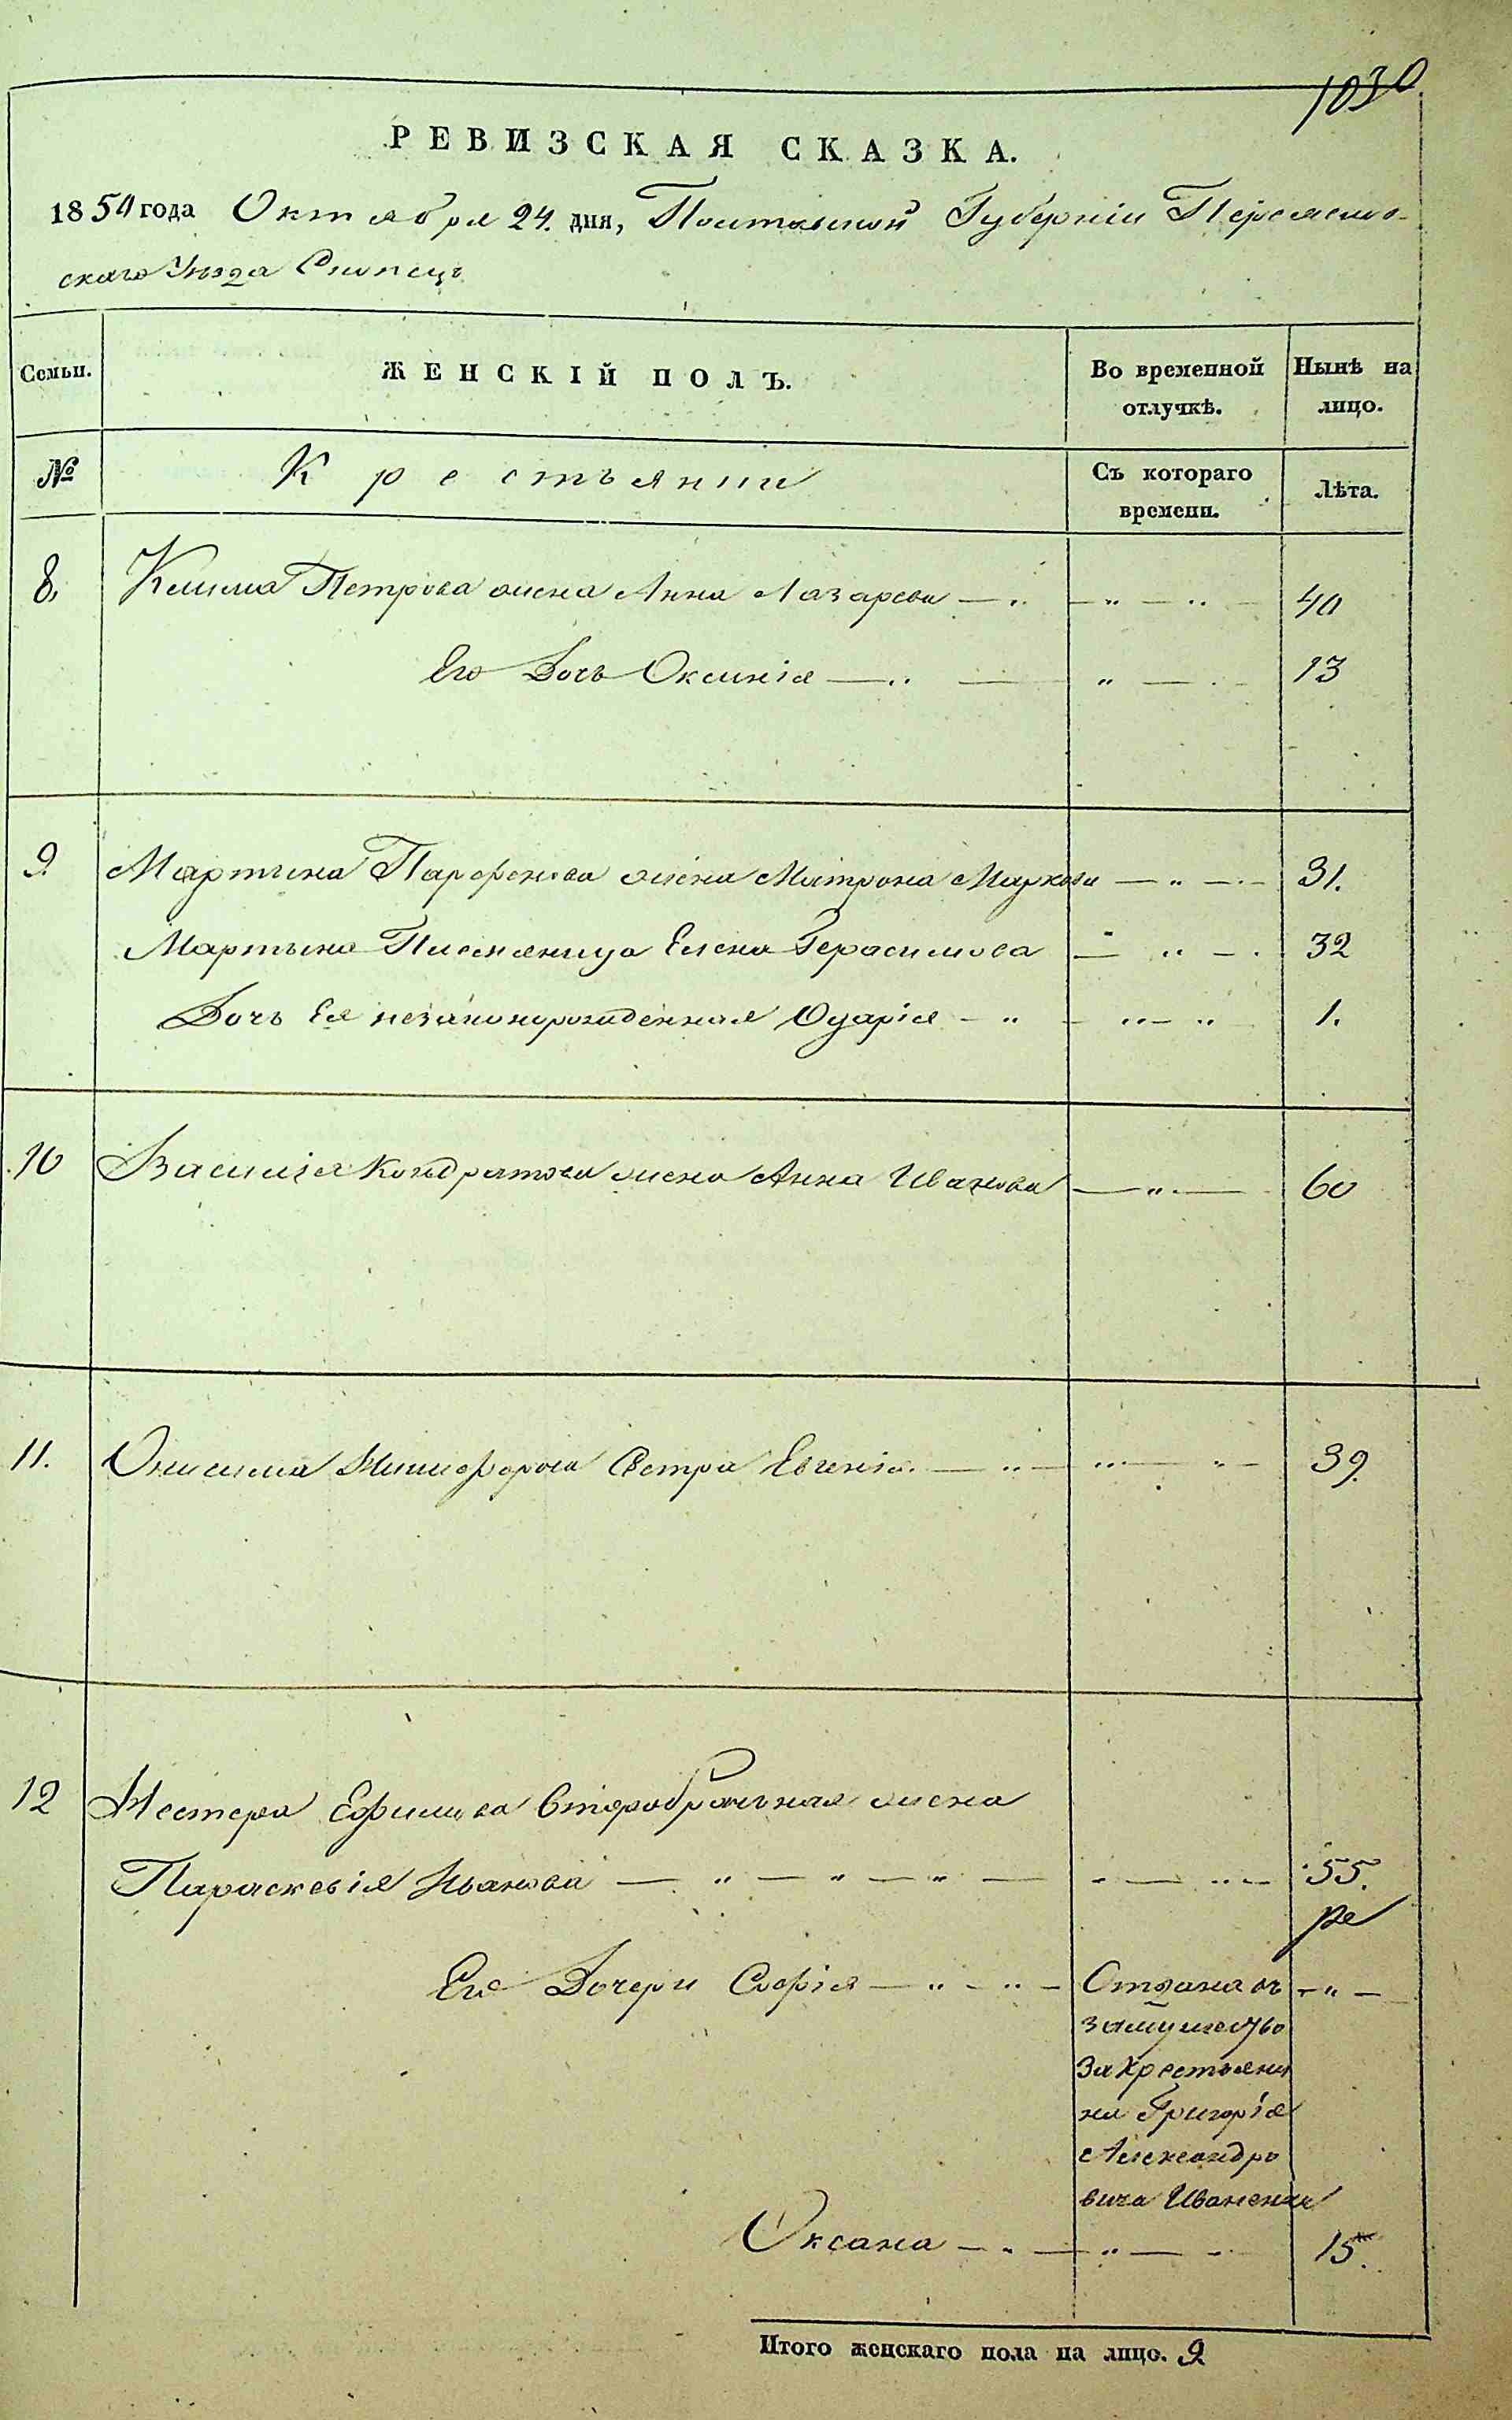 1030
РЕВИЗСКАЯ СКАЗКА.
1850 года Октября 24. дня, Полтавской Губерніи Переяслов-
скаго Уѣзда
Семьи. ЖЕНСКІЙ ПОЛЪ. Во временной отлучкѣ. Нынѣ на лицо.
№ Крестьянѣ Съ котораго времени. Лѣта.
8. Клима Петрова жена Анна Лазарева — „ — „ — „ — 40
Его Дочь Оксинія — „ — „ — 13
9. Мартина Парфенова жена Матрона Маркова — „ — 31.
Мартына Племяница Елена Герасимова — „ — 32
Дочь Ея незаконорожденная Одарія — „ — „ — „ 1.
10 Василія Кондратова жена Анна Иванова — „ — 60
11. Онисима Никифорова Сестра Евгенія. — „ — „ — „ — 39.
12 Нестера Ефимова второбрачная жена
Параскевія Иванова — „ — „ — „ — „ — „ — 55.
Его Дочери Софія — „ — „ — Отдана въ — „ —
замужество
за крестьяни
на Григорія
Александро
вича Иваненка
Оксана — „ — „ — 15.
Итого женскаго пола на лицо. 9